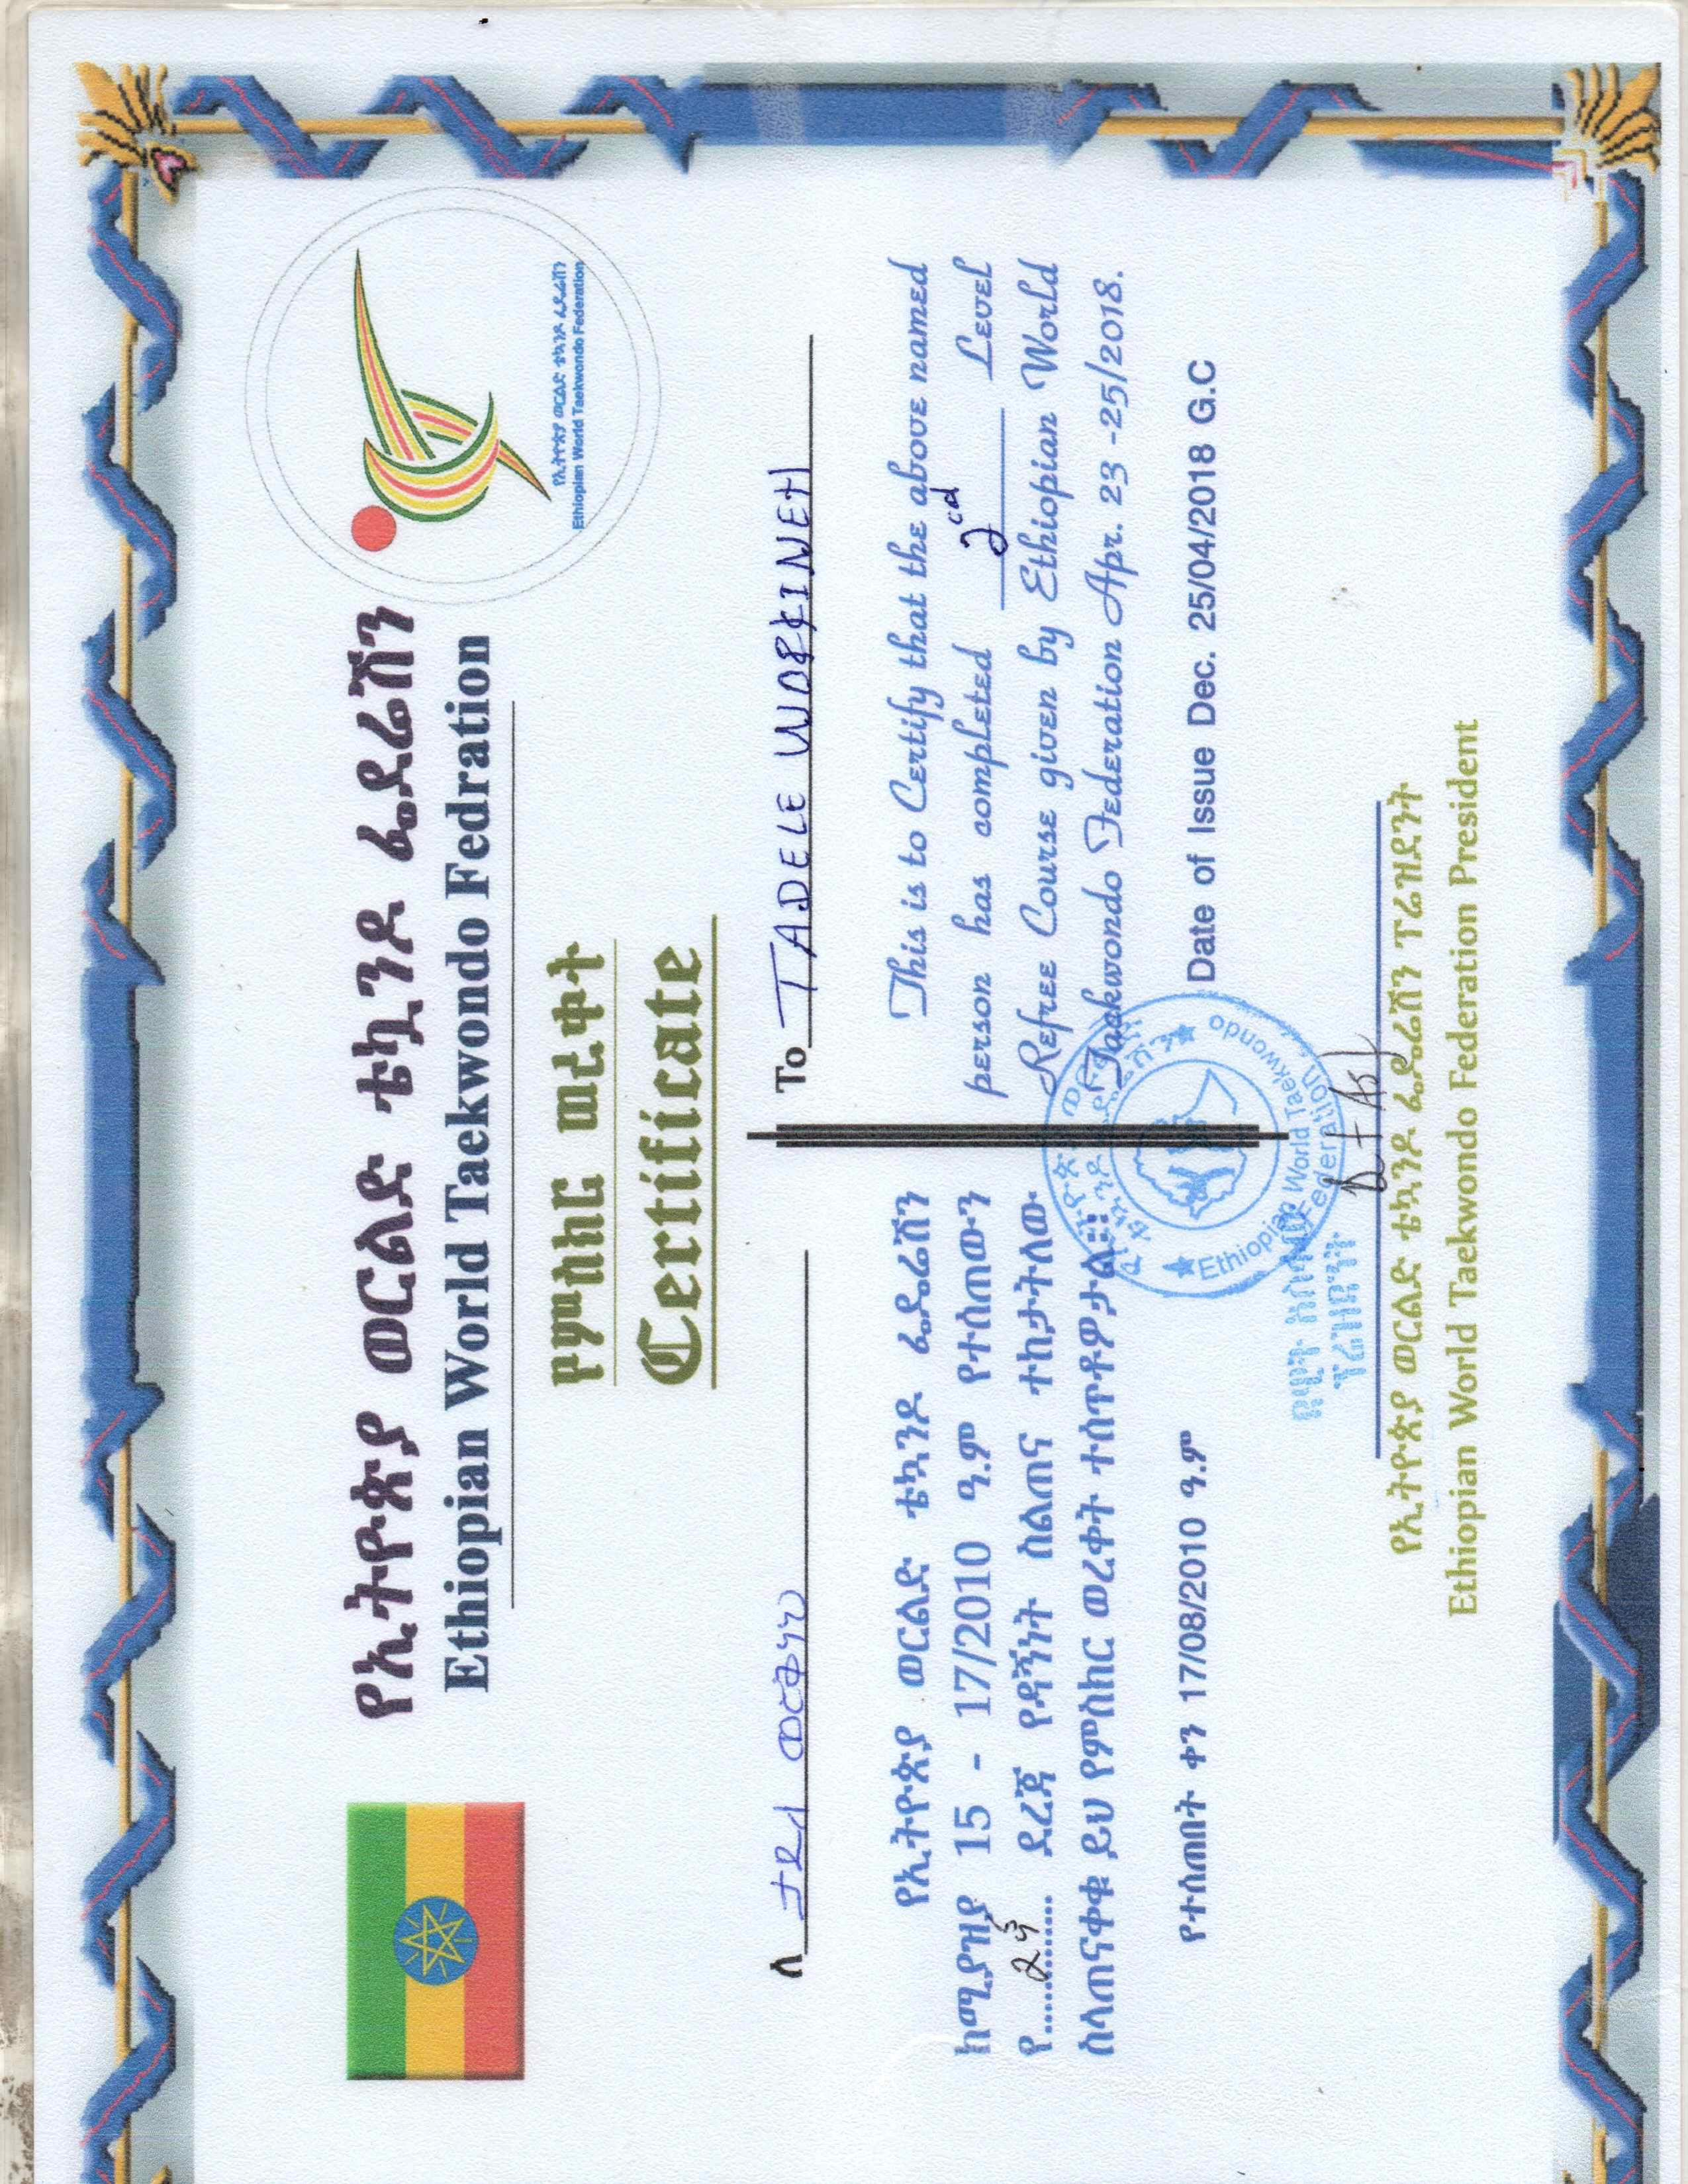 የኢትዮጵያ ወርልድ ቴኳንዶ ፌዴሬሽን
Ethiopian World Taekwondo Fedration
የኢትዮጵያ ወርልድ ቴኳንዶ ፌዴሬሽን
Ethiopian World Taekwondo Federation
የምስክር ወረቀት
Certificate
ለ ታደለ ወርቅነህ
የኢትዮጵያ ወርልድ ቴኳንዶ ፌዴሬሽን
ከሚያዝያ 15 - 17/2010 ዓ.ም የተሰጠውን
የ....2ኛ.... ደረጃ የዳኝነት ስልጠና ተከታትለው
ስላጠናቀቁ ይህ የምስክር ወረቀት ተሰጥቶዎታል፡፡
የተሰጠበት ቀን 17/08/2010 ዓ.ም
To TADELE WORKINEH
This is to Certify that the above named
person has completed 2cd Level
Refree Course given by Ethiopian World
Taekwondo Federation Apr. 23 -25/2018.
Date of Issue Dec. 25/04/2018 G.C
Ethiopian World Taekwondo
Federation
ፕሬዝዳንት
የኢትዮጵያ ወርልድ ቴኳንዶ ፌዴሬሽን ፕሬዝደንት
Ethiopian World Taekwondo Federation President